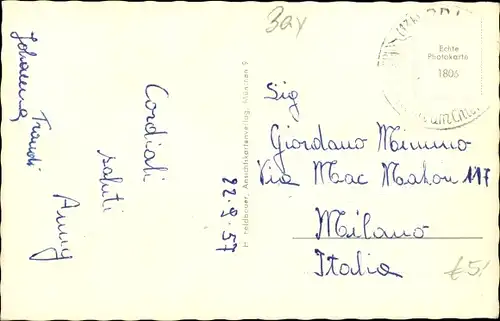 Bay
Echte
Photokarte
1806
Johanna
Traudi
Anny
Cordiali
saluti
22.9.57
H. Feldbauer, Ansichtskartenverlag, München 9
Sig
Giordano Mimmo
Via Mac Mahon 117
Milano
Italia
€ 5,-